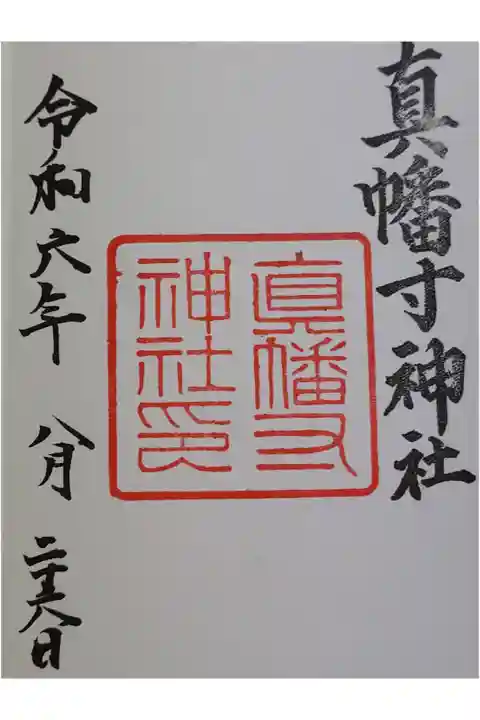 真幡寸神社
眞幡寸
神社印
令和六年 八月 二十六日